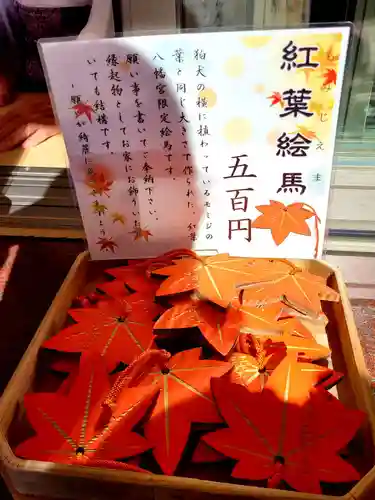 紅葉絵馬
もみじえま
五百円
狛犬の横に植わっているモミジの
葉と同じ大きさで作られた、紅葉
八幡宮限定絵馬です。
願い事を書いてご奉納下さい。
縁起物としてお家にお飾りいただ
いても結構です。
〜願いが綺麗に